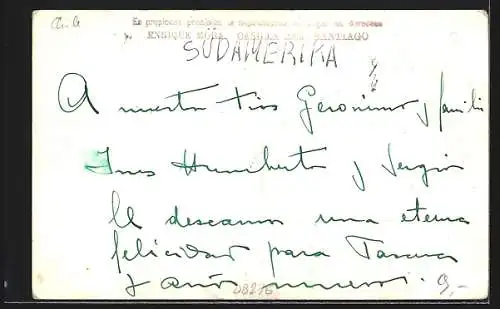 Es propiedad prohibida la reproducción
ENRIQUE MORA, CASILLA SANTIAGO
SÜDAMERIKA
A nuestro tios Geronimo y famili
Ines Humberto y Sergio
le deseamos una eterna
felicidad para Pascua
y año nuevo. 9,-
08216